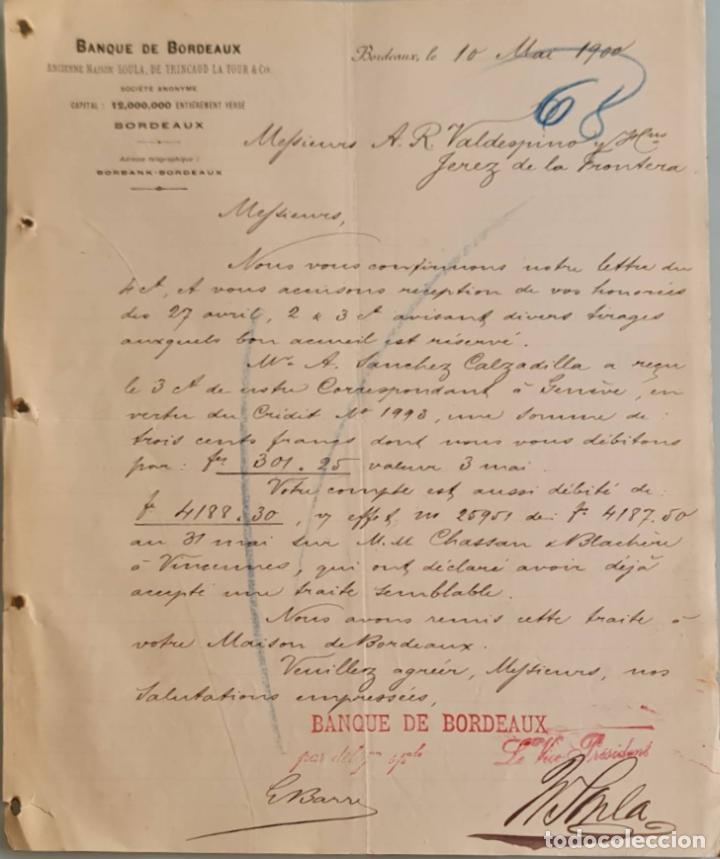 BANQUE DE BORDEAUX
ANCIENNE MAISON SOULA, DE TRINCAUD LA TOUR & Cie
SOCIÉTÉ ANONYME
CAPITAL : 12,000,000 ENTIÈREMENT VERSÉ
BORDEAUX
Adresse télégraphique :
BORBANK-BORDEAUX
Bordeaux, le 10 Mai 1900
68
Messieurs A. R. Valdespino y Hnos
Jerez de la Frontera
Messieurs,
Nous vous confirmons notre lettre du
4 ct, & vous accusons réception de vos honorées
des 27 avril, 2 & 3 ct avisant divers tirages
auxquels bon accueil est réservé.
Mr A. Sanchez Calzadilla a reçu
le 3 ct de notre Correspondant à Genève, en
vertu du Crédit No 1993, une somme de :
trois cents francs dont nous vous débitons
par : frs 301.25 valeur 3 mai.
Votre compte est aussi débité de :
f. 4188.30, effet no 25951 de f. 4187.50
au 31 mai sur M.M Chassan & Blachère
à Vincennes, qui ont déclaré avoir déjà
accepté une traite semblable.
Nous avons remis cette traite à
votre Maison de Bordeaux.
Veuillez agréer, Messieurs, nos
salutations empressées,
BANQUE DE BORDEAUX
par délgon sple
Le Vice-Président
E Barre
todocoleccion